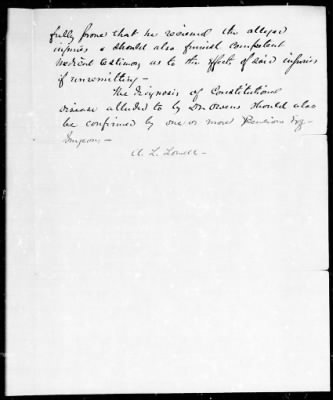 fully prove that he received the alleged
injuries & should also furnish competent
medical testimony as to the effects of said injuries
if unremitting -
The diagnosis of Constitutional
disease alluded to by Dr. Owens should also
be confirmed by one or more Pension Exg-
Surgeons -
A. L. Lowell -